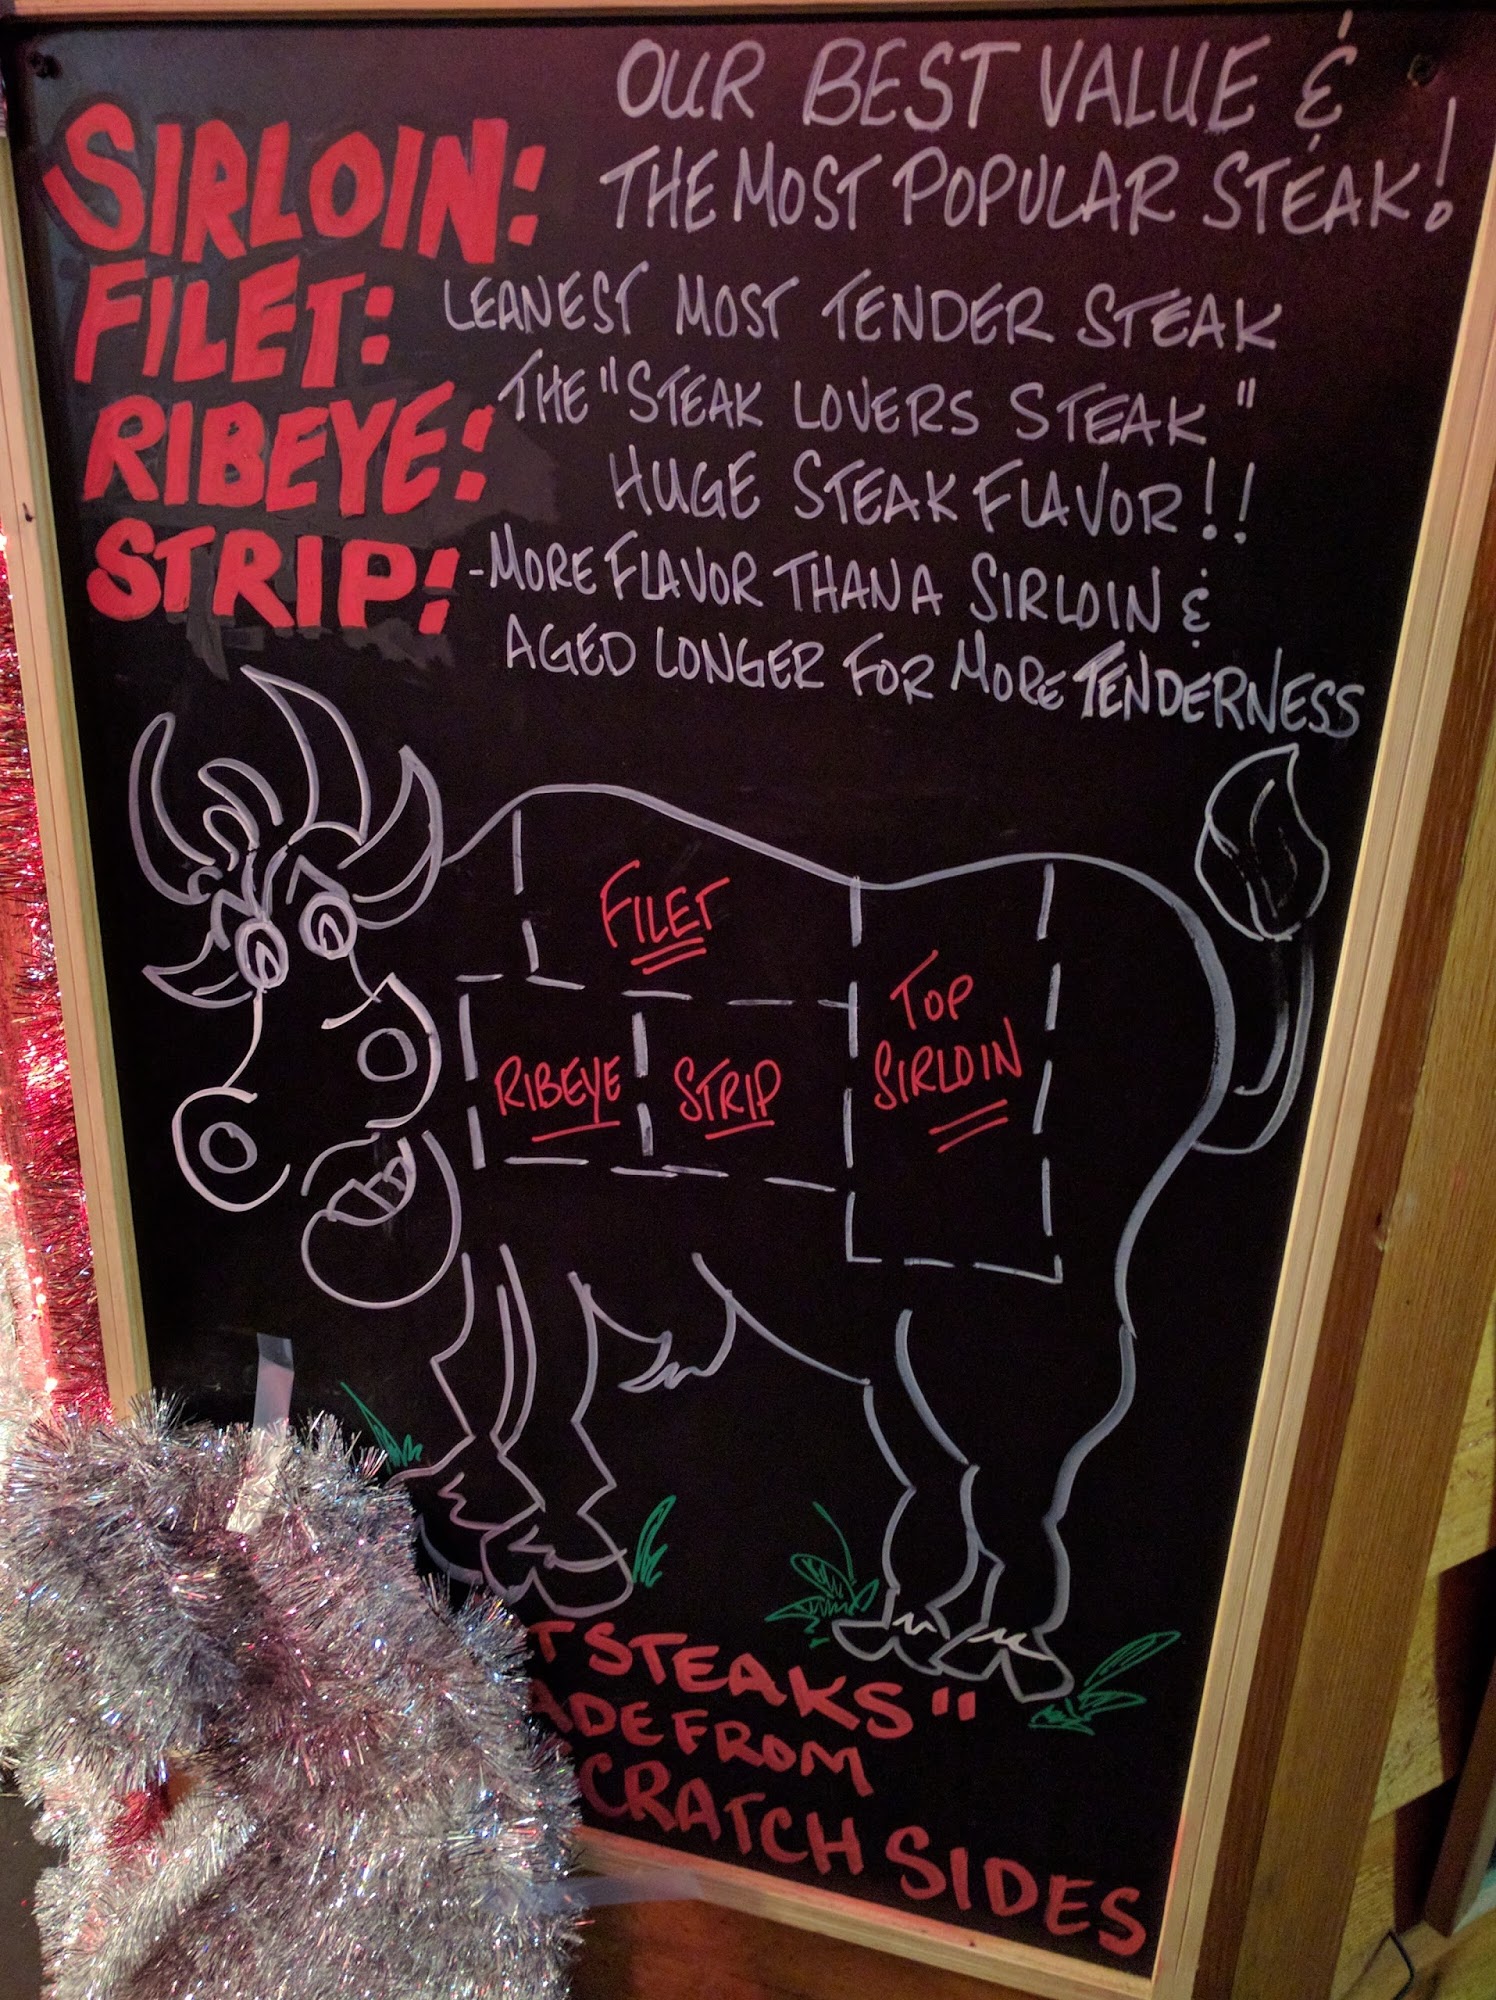 SIRLOIN: OUR BEST VALUE &
THE MOST POPULAR STEAK!
FILET: LEANEST MOST TENDER STEAK
RIBEYE: THE "STEAK LOVERS STEAK"
HUGE STEAK FLAVOR!!
STRIP: -MORE FLAVOR THAN A SIRLOIN &
AGED LONGER FOR MORE TENDERNESS
FILET
TOP
SIRLOIN
RIBEYE
STRIP
STEAKS"
FROM
SIDES